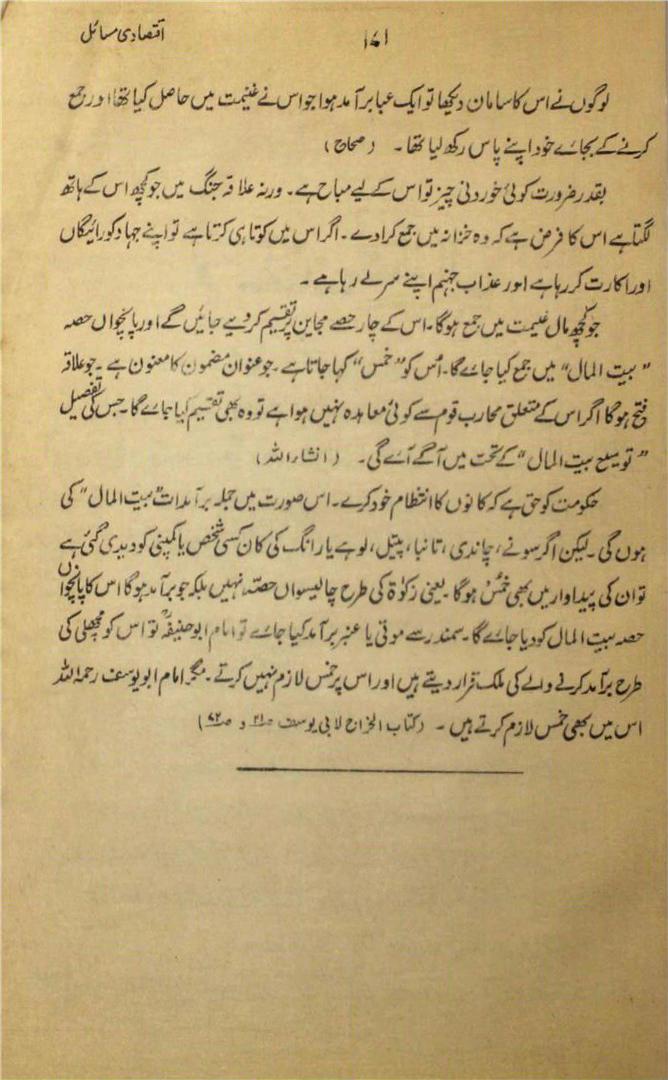 اقتصادی مسائل
۱۷۱
لوگوں نے اس کا سامان دیکھا تو ایک عبا برآمد ہوا جو اس نے غنیمت میں حاصل کیا تھا اور جمع
کرنے کے بجائے خود اپنے پاس رکھ لیا تھا۔ (صحاح)
بقدر ضرورت کوئی خوردنی چیز تو اس کے لیے مباح ہے۔ ورنہ علاقہ جنگ میں جو کچھ اس کے ہاتھ
لگتا ہے اس کا فرض ہے کہ وہ خزانہ میں جمع کرا دے۔ اگر اس میں کوتاہی کرتا ہے تو اپنے جہاد کو رائیگاں
اور اکارت کر رہا ہے اور عذاب جہنم اپنے سر لے رہا ہے۔
جو کچھ مال غنیمت میں جمع ہوگا۔ اس کے چار حصے مجاہین پر تقسیم کر دیے جائیں گے اور پانچواں حصہ
"بیت المال" میں جمع کیا جائے گا۔ اُس کو "خمس" کہا جاتا ہے۔ جو عنوان مضمون کا معنون ہے۔ جو علاقہ
فتح ہوگا اگر اس کے متعلق محارب قوم سے کوئی معاہدہ نہیں ہوا ہے تو وہ بھی تقسیم کیا جائے گا۔ جس کی تفصیل
"توسیع بیت المال" کے تحت میں آگے آئے گی۔ (انشاء اللہ)
حکومت کو حق ہے کہ کانوں کا انتظام خود کرے۔ اس صورت میں جملہ برآمدات "بیت المال" کی
ہوں گی۔ لیکن اگر سونے، چاندی، تانبا، پیتل، لوہے یا رانگ کی کان کسی شخص یا کمپنی کو دیدی گئی ہے
تو ان کی پیداوار میں بھی خمُس ہوگا۔ یعنی زکوٰۃ کی طرح چالیسواں حصّہ نہیں بلکہ جو برآمد ہوگا اس کا پانچواں
حصہ بیت المال کو دیا جائے گا۔ سمندر سے موتی یا عنبر برآمد کیا جائے تو امام ابو حنیفہؒ تو اس کو مچھلی کی
طرح برآمد کرنے والے کی ملک قرار دیتے ہیں اور اس پر خمس لازم نہیں کرتے۔ مگر امام ابو یوسف رحمہ اللہ
اس میں بھی خمس لازم کرتے ہیں۔ (کتاب الخراج لابی یوسف ص۲۱ و ص۷۲)